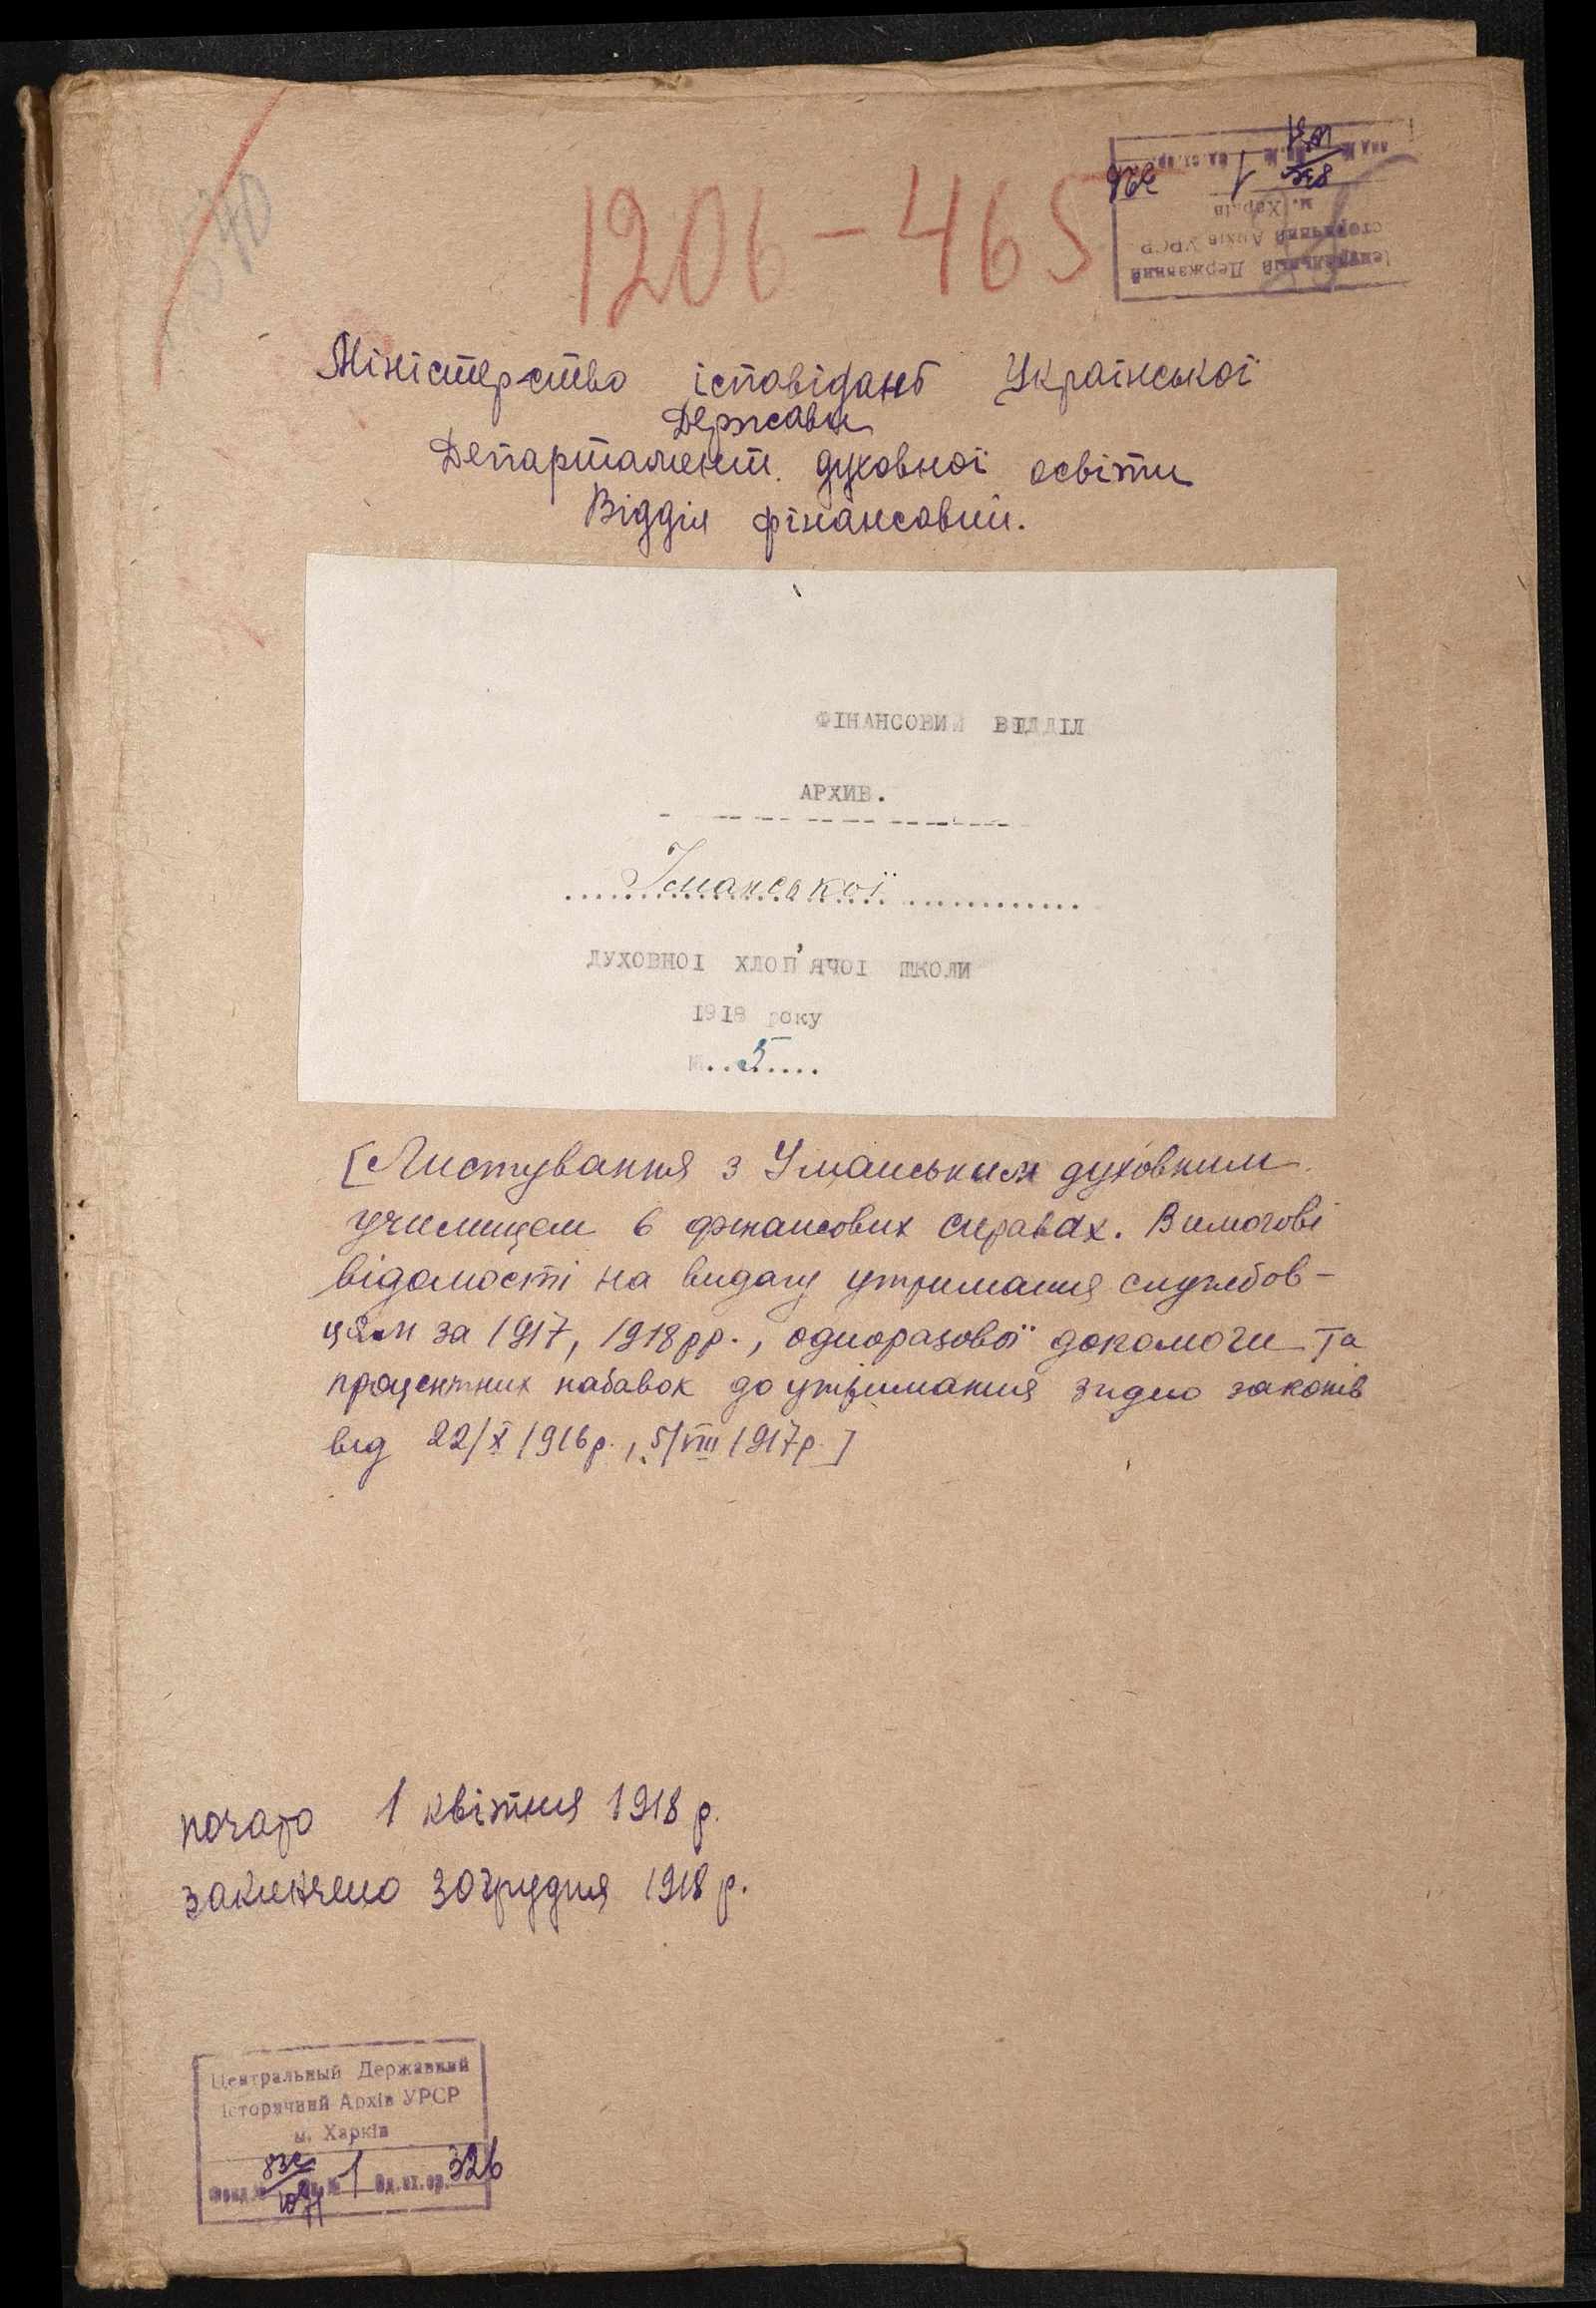 1206-465
Міністерство ісповідань Української
Держави
Департамент духовної освіти
Відділ фінансовий.
ФІНАНСОВИЙ ВІДДІЛ
АРХИВ.
Уманської
ДУХОВНОІ ХЛОП'ЯЧОІ ШКОЛИ
1918 року
№..5.....
[Листування з Уманським духовним
училищем в фінансових справах. Вимогові
відомості на видачу утримання службов-
цям за 1917, 1918 рр., одноразової допомоги та
процентних набавок до утримання згідно законів
від 22/X 1916 р., 5/VIII 1917 р.]
почато 1 квітня 1918 р.
закінчено 30 грудня 1918 р.
Центральный Державний
Історичний Архів УРСР
м. Харків
Фонд.№ Оп.№ 1 Од.зх.ор. 326